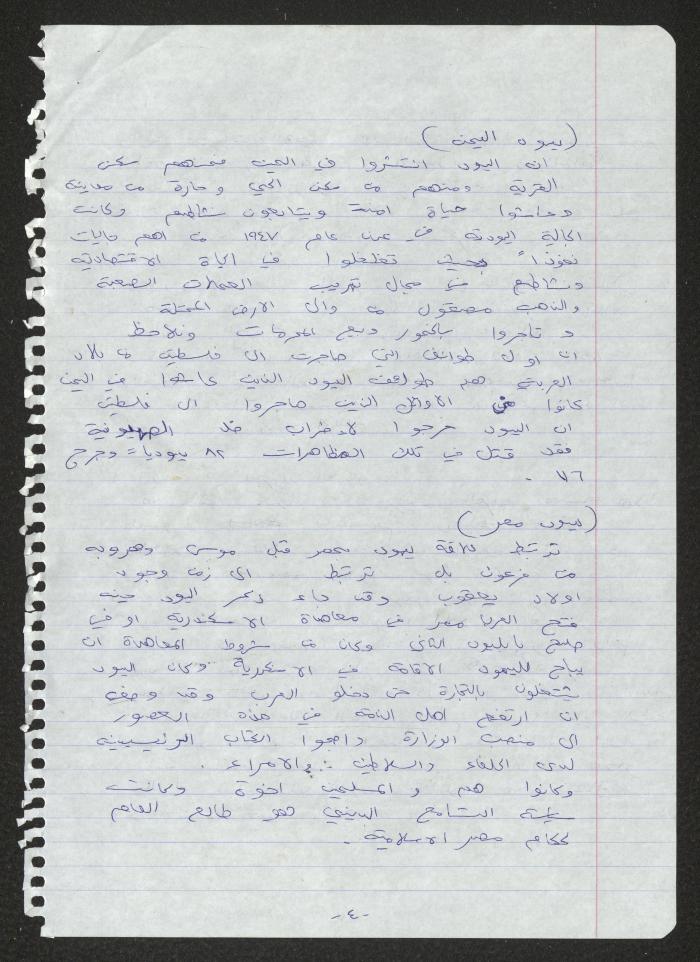 (يهود اليمن)
ان اليهود انتشروا في اليمن فمنهم سكن
القرية ومنهم من سكن الحي وحارة من مدينة
وعاشوا حياة امنة ويتابعون نشاطهم وكانت
الجالية اليهودية في عدن عام ١٩٤٧ من اهم جاليات
نفوذاً بحيث تغلغلوا في الحياة الاقتصادية
ونشاطهم في مجال تهريب العملات الصعبة
والذهب مصقول من والى الارض المحتلة
و تاجروا بالخمور وبيع المحرمات ونلاحظ
ان اول طوائف التي هاجرت الى فلسطين من بلاد
العربية هم طوائف اليهود الذين عاشوا في اليمن
كانوا من الاوائل الذين هاجروا الى فلسطين
ان اليهود خرجوا لاضراب ضد الصهيونية
فقد قتل في تلك المظاهرات ٨٢ يهودياً وجرح
٧٦ .
(يهود مصر)
ترتبط علاقة يهود بمصر قبل موسى وهروبه
من فرعون بل ترتبط الى زمن وجود
اولاد يعقوب وقد جاء ذكر اليهود حين
فتح العرب مصر في معاهدة الاسكندرية او في
صلح بابليون الثاني وكان من شروط المعاهدة ان
يباح لليهود الاقامة في الاسكندرية وكان اليهود
يشتغلون بالتجارة حتى دخلو العرب وقد وصف
ان ارتفع اهل الذمة في هذه العصور
الى منصب الوزارة واصبحوا الكتاب الرئيسيين
لدى الخلفاء والسلاطين والامراء .
وكانوا هم والمسلمين اخوة وكانت
سياسة التسامح الديني هو طابع العام
لحكام مصر الاسلامية .
-٤-